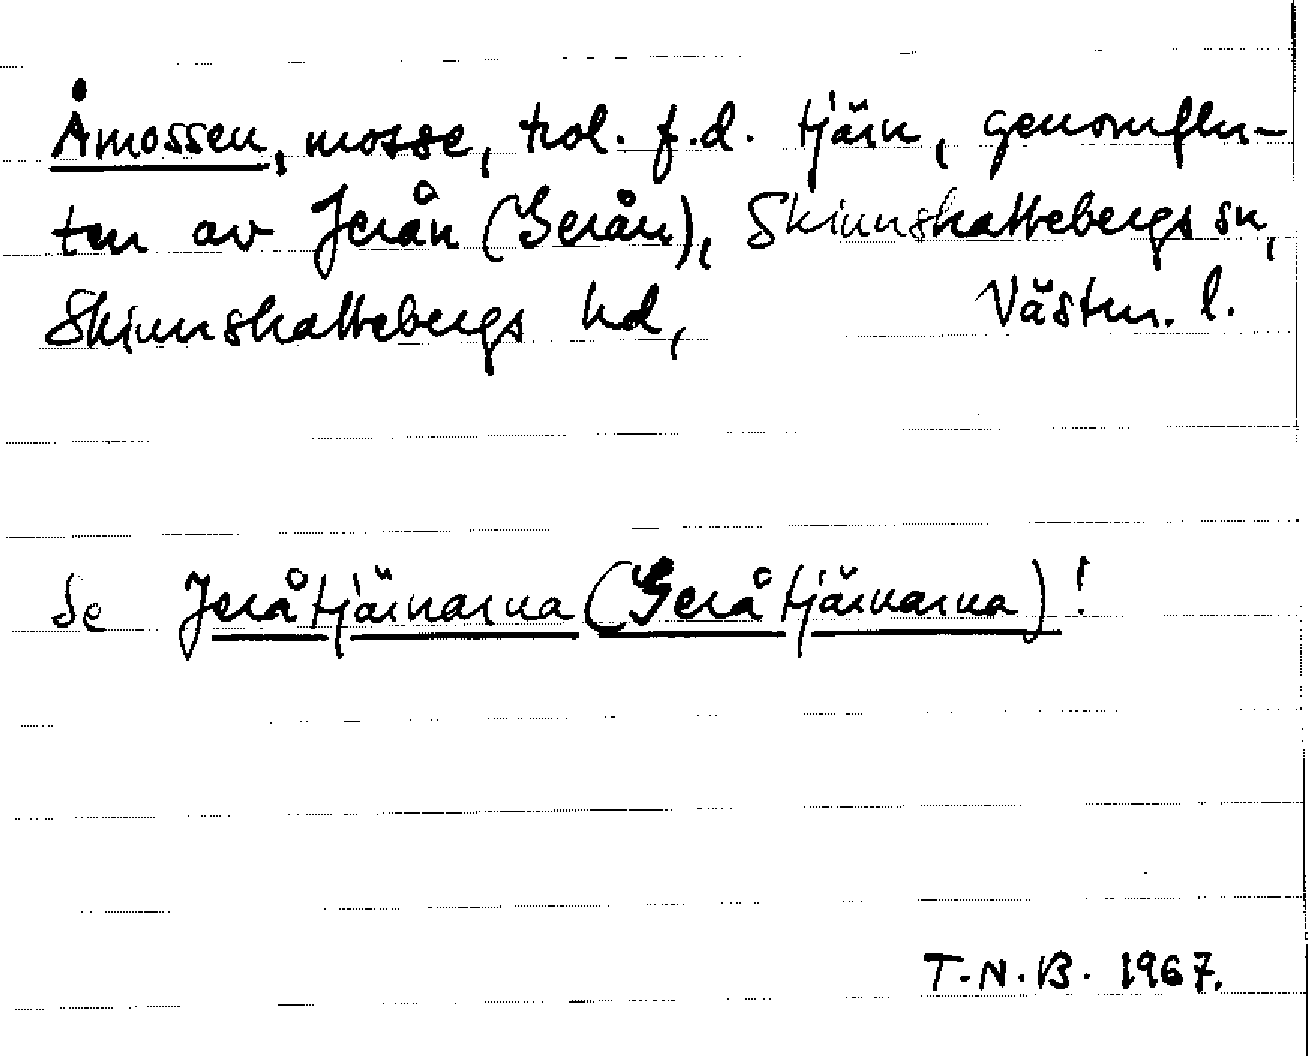 Åmossen, mosse, trol. f.d. tjärn, genomflu-
ten av Jerån (Gerån), Skinnskattebergs sn,
Skinnskattebergs hd, Västm. l.
Se Jeråtjärnarna (Geråtjärnarna)!
T.N.B. 1967.